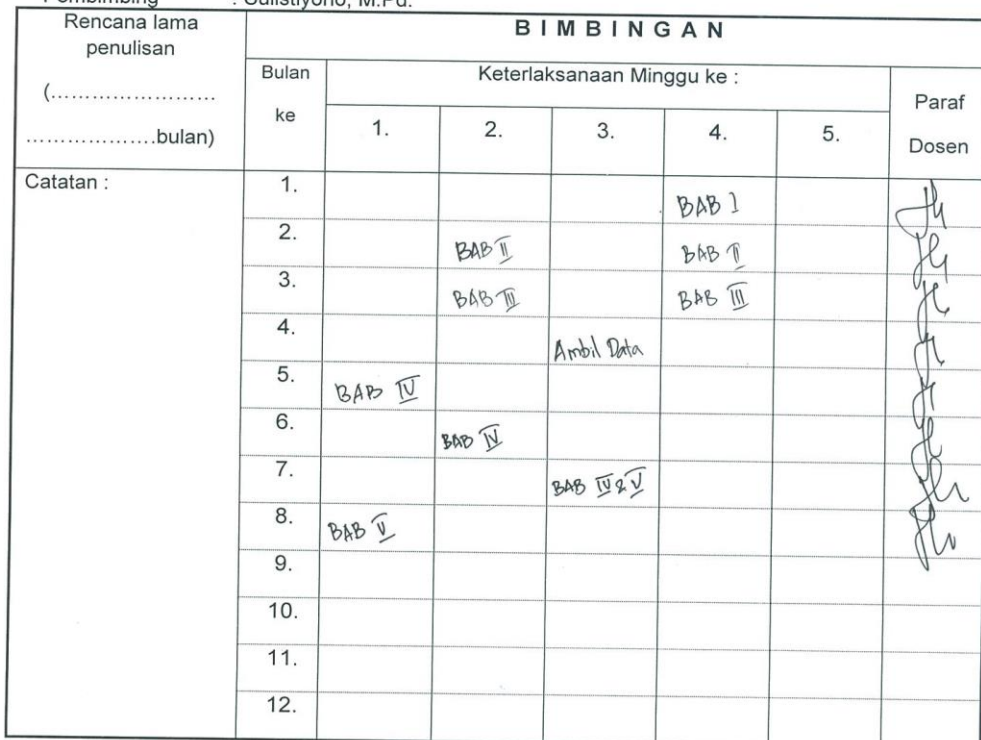 Pembimbing : Sulistiyono, M.Pd.
Rencana lama penulisan
(........................
...................bulan)
BIMBINGAN
Bulan ke
Keterlaksanaan Minggu ke :
1. 2. 3. 4. 5.
Paraf Dosen
Catatan :
1. BAB I
2. BAB II BAB II
3. BAB III BAB III
4. Ambil Data
5. BAB IV
6. BAB IV
7. BAB IV & V
8. BAB V
9.
10.
11.
12.